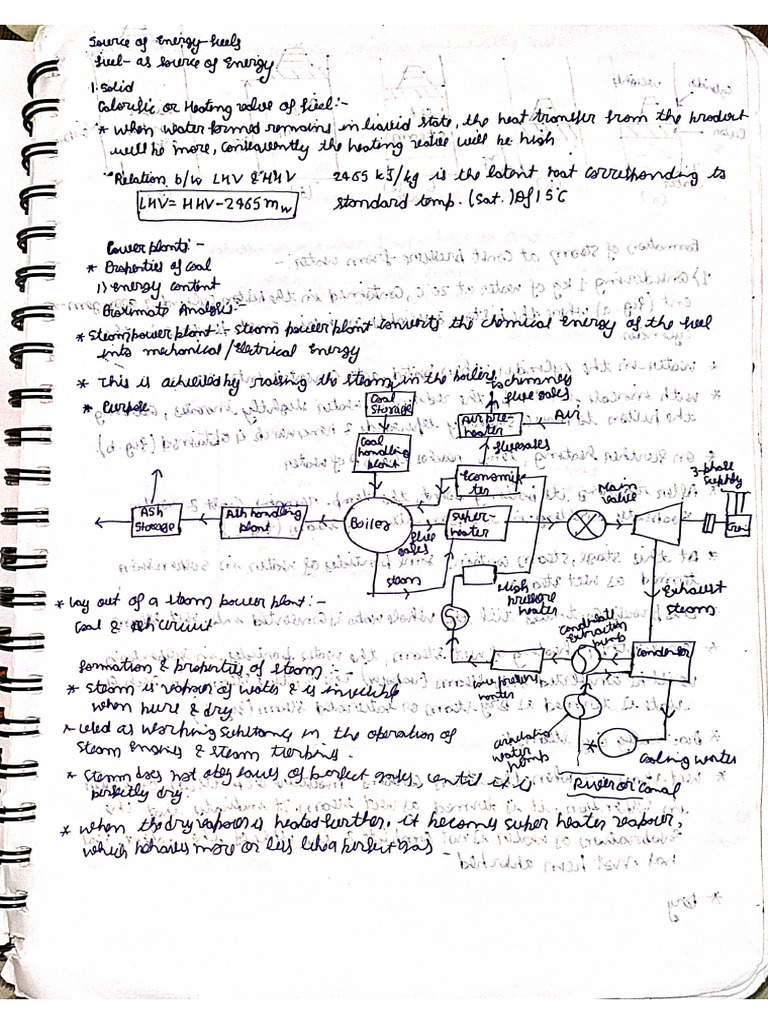 Source of Energy-fuels
fuel- as source of Energy
1. Solid
Calorific or Heating value of fuel:-
* When water formed remains in liquid state, the heat transfer from the product
will be more, consequently the heating value will be high
* Relation b/w LHV & HHV 2465 kJ/kg is the latent heat corresponding to
LHV = HHV-2465 mw standard temp. (sat.) Of 15°C
Power plants:-
* Properties of coal
1) Energy content
Proximate Analysis:-
* Steam power plant:- Steam power plant converts the chemical energy of the fuel
into mechanical/Eletrical Energy
* This is achieved by raising the steam in the boilers
* Purpose
to chimney
flue gases
Coal
Storage
Air pre-
heater
Air
Coal
handling
plant
flue gases
Economi-
ter
3-phase
Supply
Main
valve
Ash
Storage
Ash handling
plant
Boiler
flue
gases
Super-
heater
Gen
steam
High
pressure
heater
Exhaust
Steam
* Lay out of a steam power plant:-
Coal & Ash circuit
Condensate
Extraction
pump
Condensor
low pressure
heater
formation & properties of steam:-
* Steam is vapour of water & is invisible
when pure & dry
* Used as working substance in the operation of
Steam engines & steam turbins.
water
pump
* Cooling water
River or Canal
* Steam does not obey laws of perfect gases, until it is
perfectly dry
* When the dry vapour is heated further, it becomes super heater vapour,
which behaves more or less like a perfect gas -